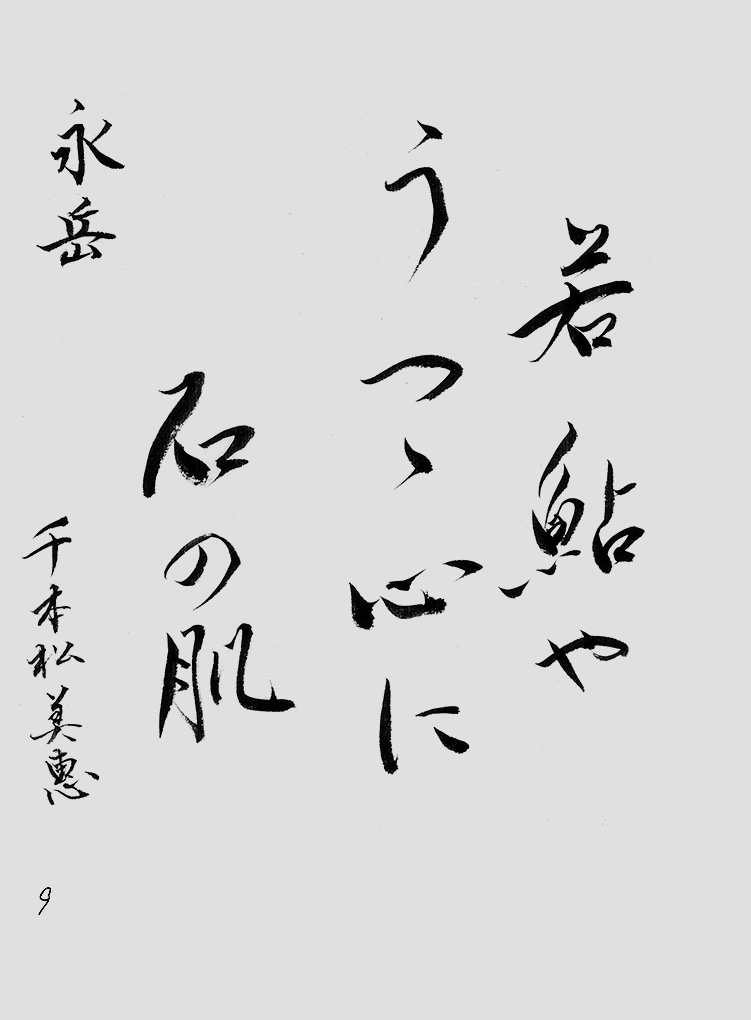 若鮎や
うつゝ心に
石の肌
永岳
千本松美惠
9